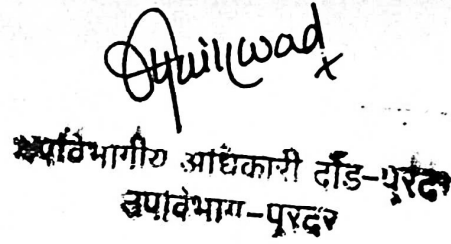 उपविभागीय अधिकारी दौंड-पुरंदर
उपविभाग-पुरंदर